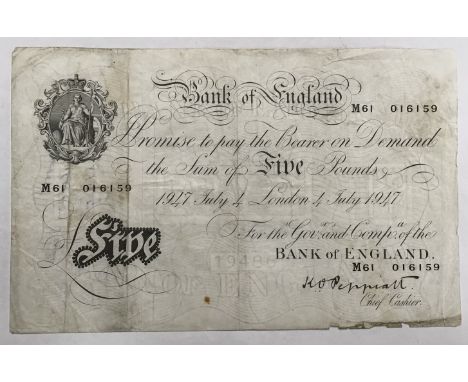 Bank of England
M61 016159
I Promise to pay the Bearer on Demand
the Sum of Five Pounds
M61 016159
1947 July 4 London 4 July 1947
For the Gov.r and Comp.a of the
Five
BANK of ENGLAND.
M61 016159
K O Peppiatt
Chief Cashier.